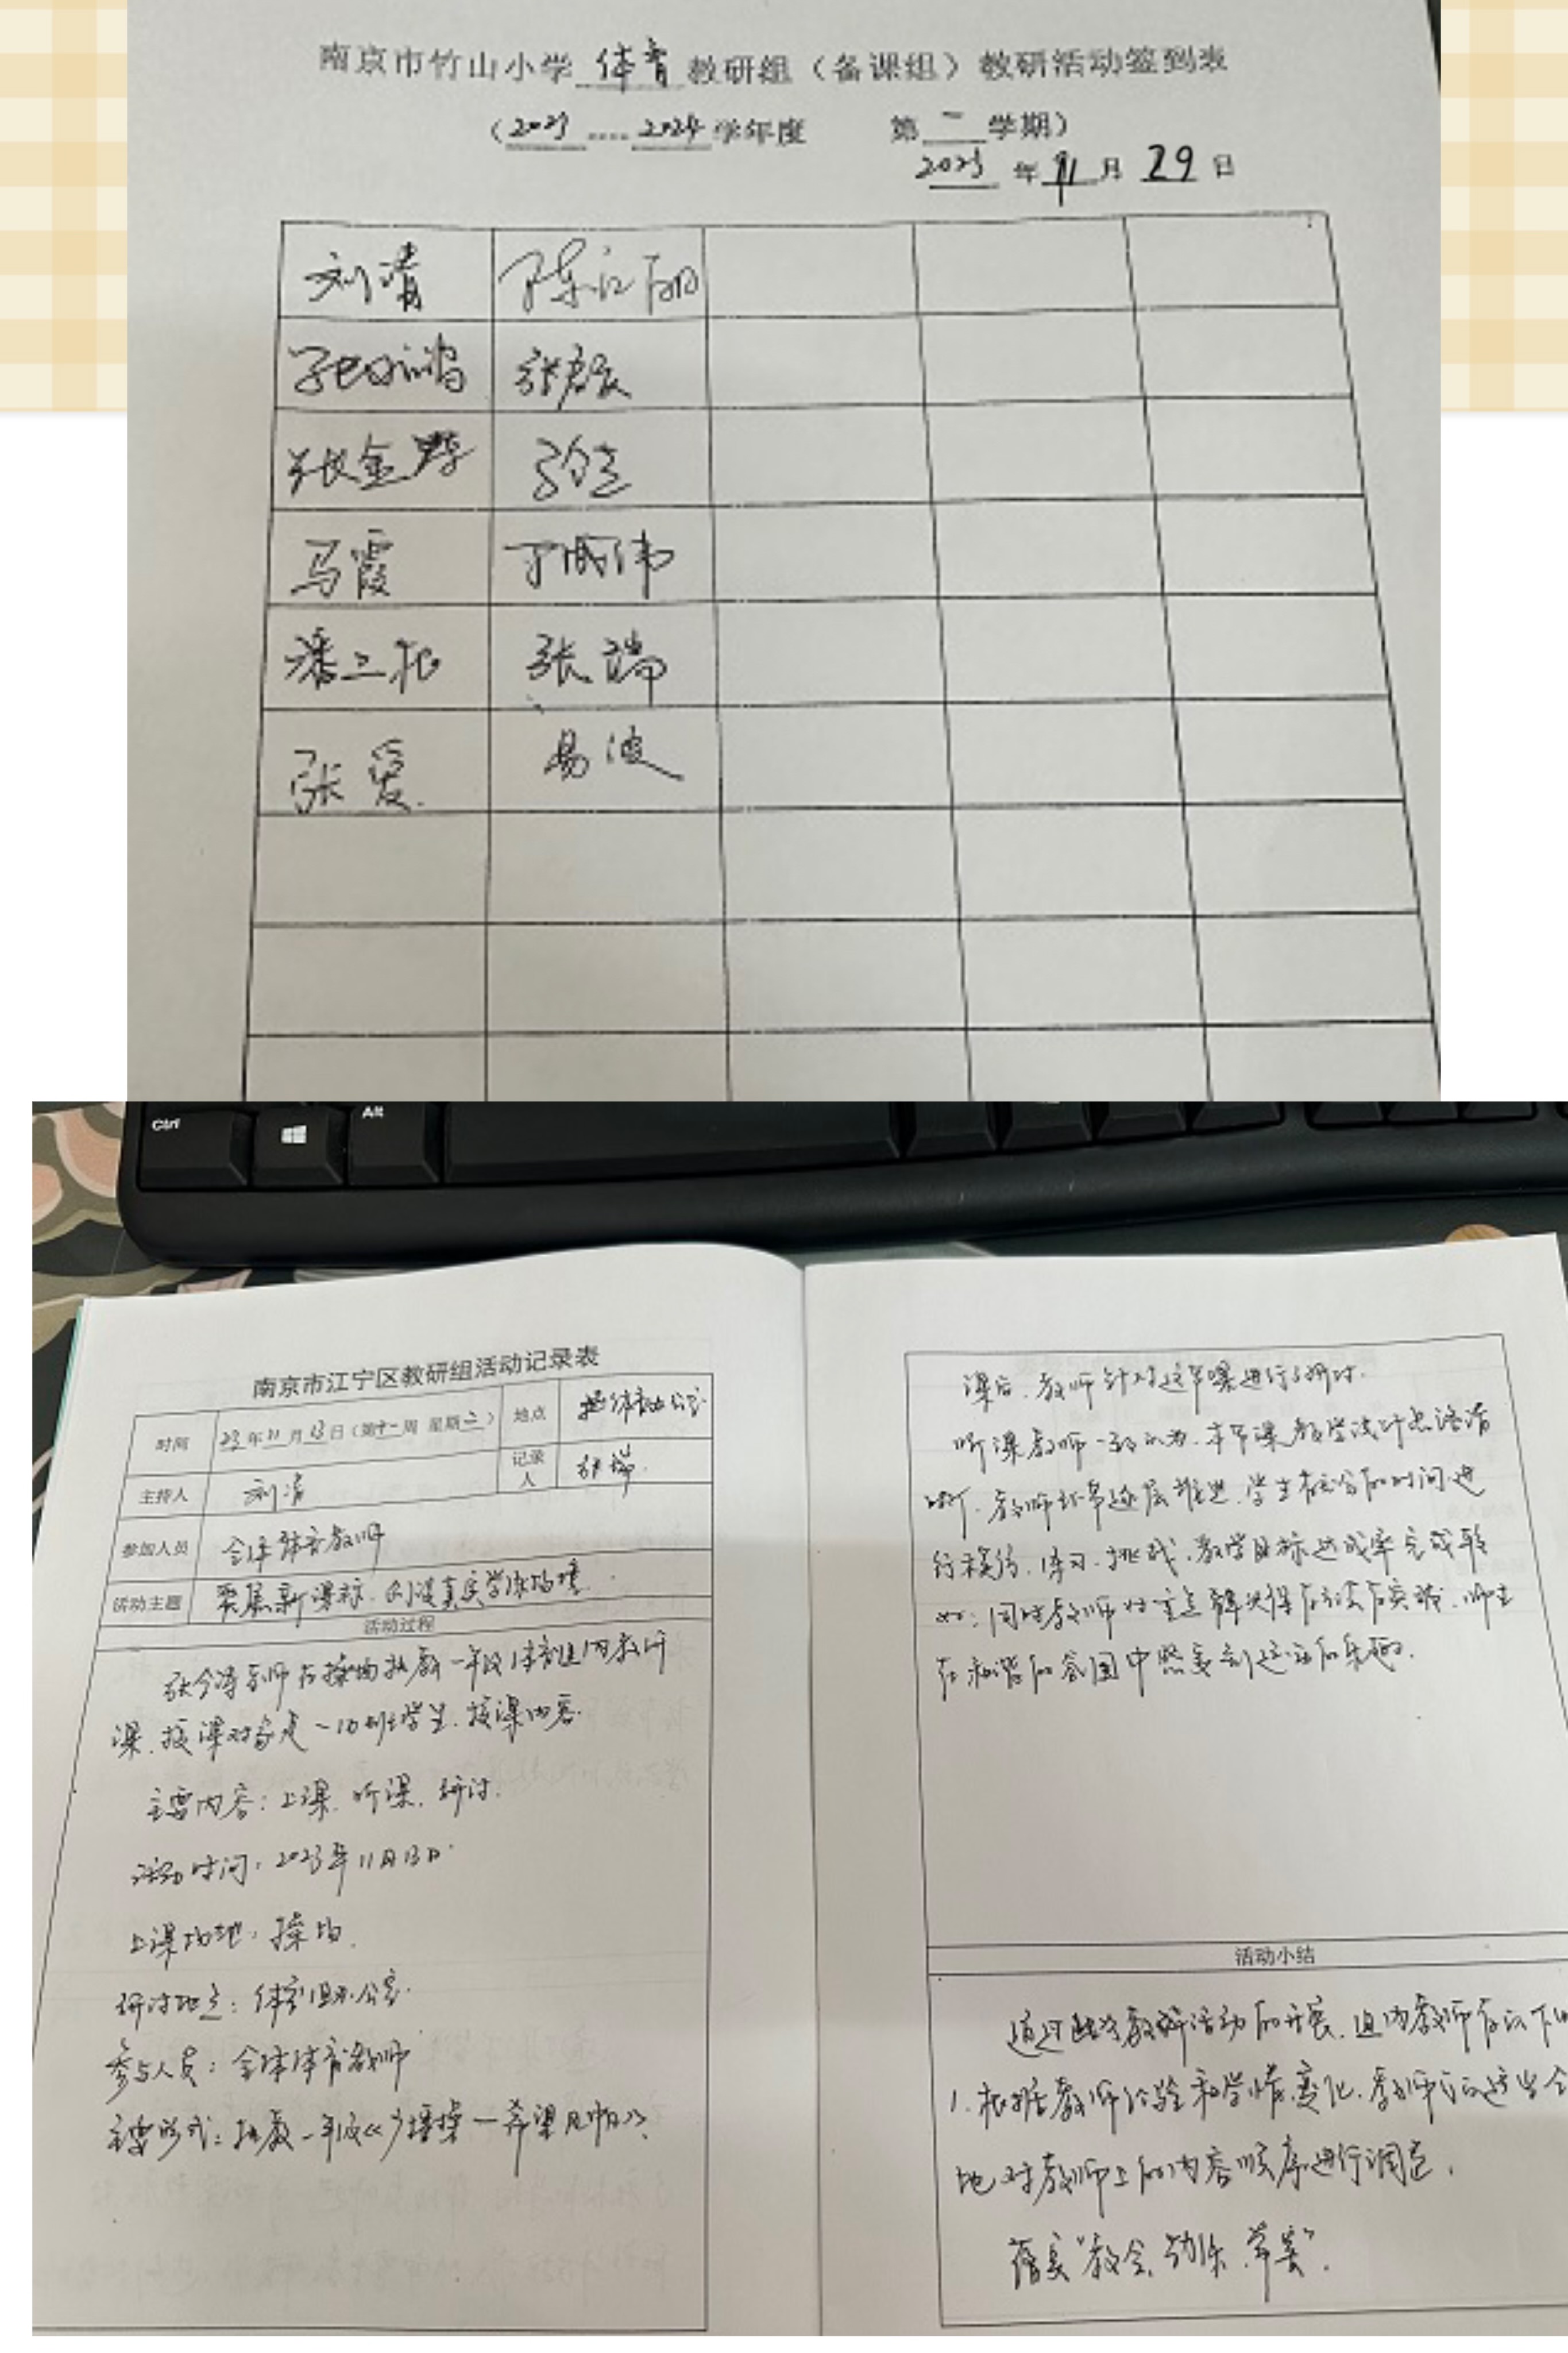 南京市竹山小学 体育 教研组（备课组）教研活动签到表
（2023 ---- 2024 学年度 第 一 学期）
2023 年 11 月 29 日
刘清 陈江丽
张君辰
张金
马霞 丁成伟
潘立松 张瑞
张爱 易波
Ctrl Alt
南京市江宁区教研组活动记录表
时间 23年11月13日（第十一周 星期二） 地点 体育办公室
主持人 刘清 记录人 张瑞
参加人员 全体体育教师
活动主题 聚焦新课标，创设真实学练场境
活动过程
教师在操场执教一年级体育组内教研
课，授课对象是一10班学生，授课内容
主要内容：上课，听课，研讨．
活动时间：2023年11月13日．
上课场地：操场．
研讨地点：体育组办公室．
参与人员：全体体育教师
主要形式：执教一年级《广播操—希望风帆》．
课后，教师针对这节课进行了研讨．
听课教师一致认为，本节课教学设计思路清
晰，教师环节逐层推进，学生有充分的时间进
行模仿，练习，挑战，教学目标达成率完成较
好；同时教师对重点解决得方法与实践，师生
在和谐的氛围中感受到运动的乐趣．
活动小结
通过此次教研活动的开展，组内教师有以下
1．根据教师经验和学情变化，教师应适当合
地对教师上的内容顺序进行调适．
落实“教会，勤练，常赛”．